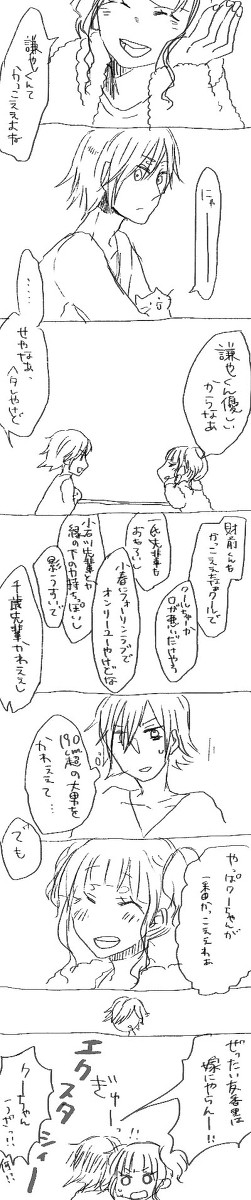 謙也くんて
かっこええよな
にゃ
‥‥
謙也くん優しい
からなあ
せやなあ、
ヘタレやけど
財前くんも
かっこええたな
クールで
クールちゅーか
口が悪いだけやろ
一氏先輩も
おもろいし
小春にフォーリンラブで
オンリーユーやけどな
小石川先輩とか
縁の下の力持ちっぽいし
影うすいで
千歳先輩かわええし
190cm超の大男を
かわええて…
でも
やっぱクーちゃんが
一番かっこええわぁ
ぜったい友香里は
嫁にやらんー!!
ぎゅー
エクスタシィー
クーちゃん
うざっ!!